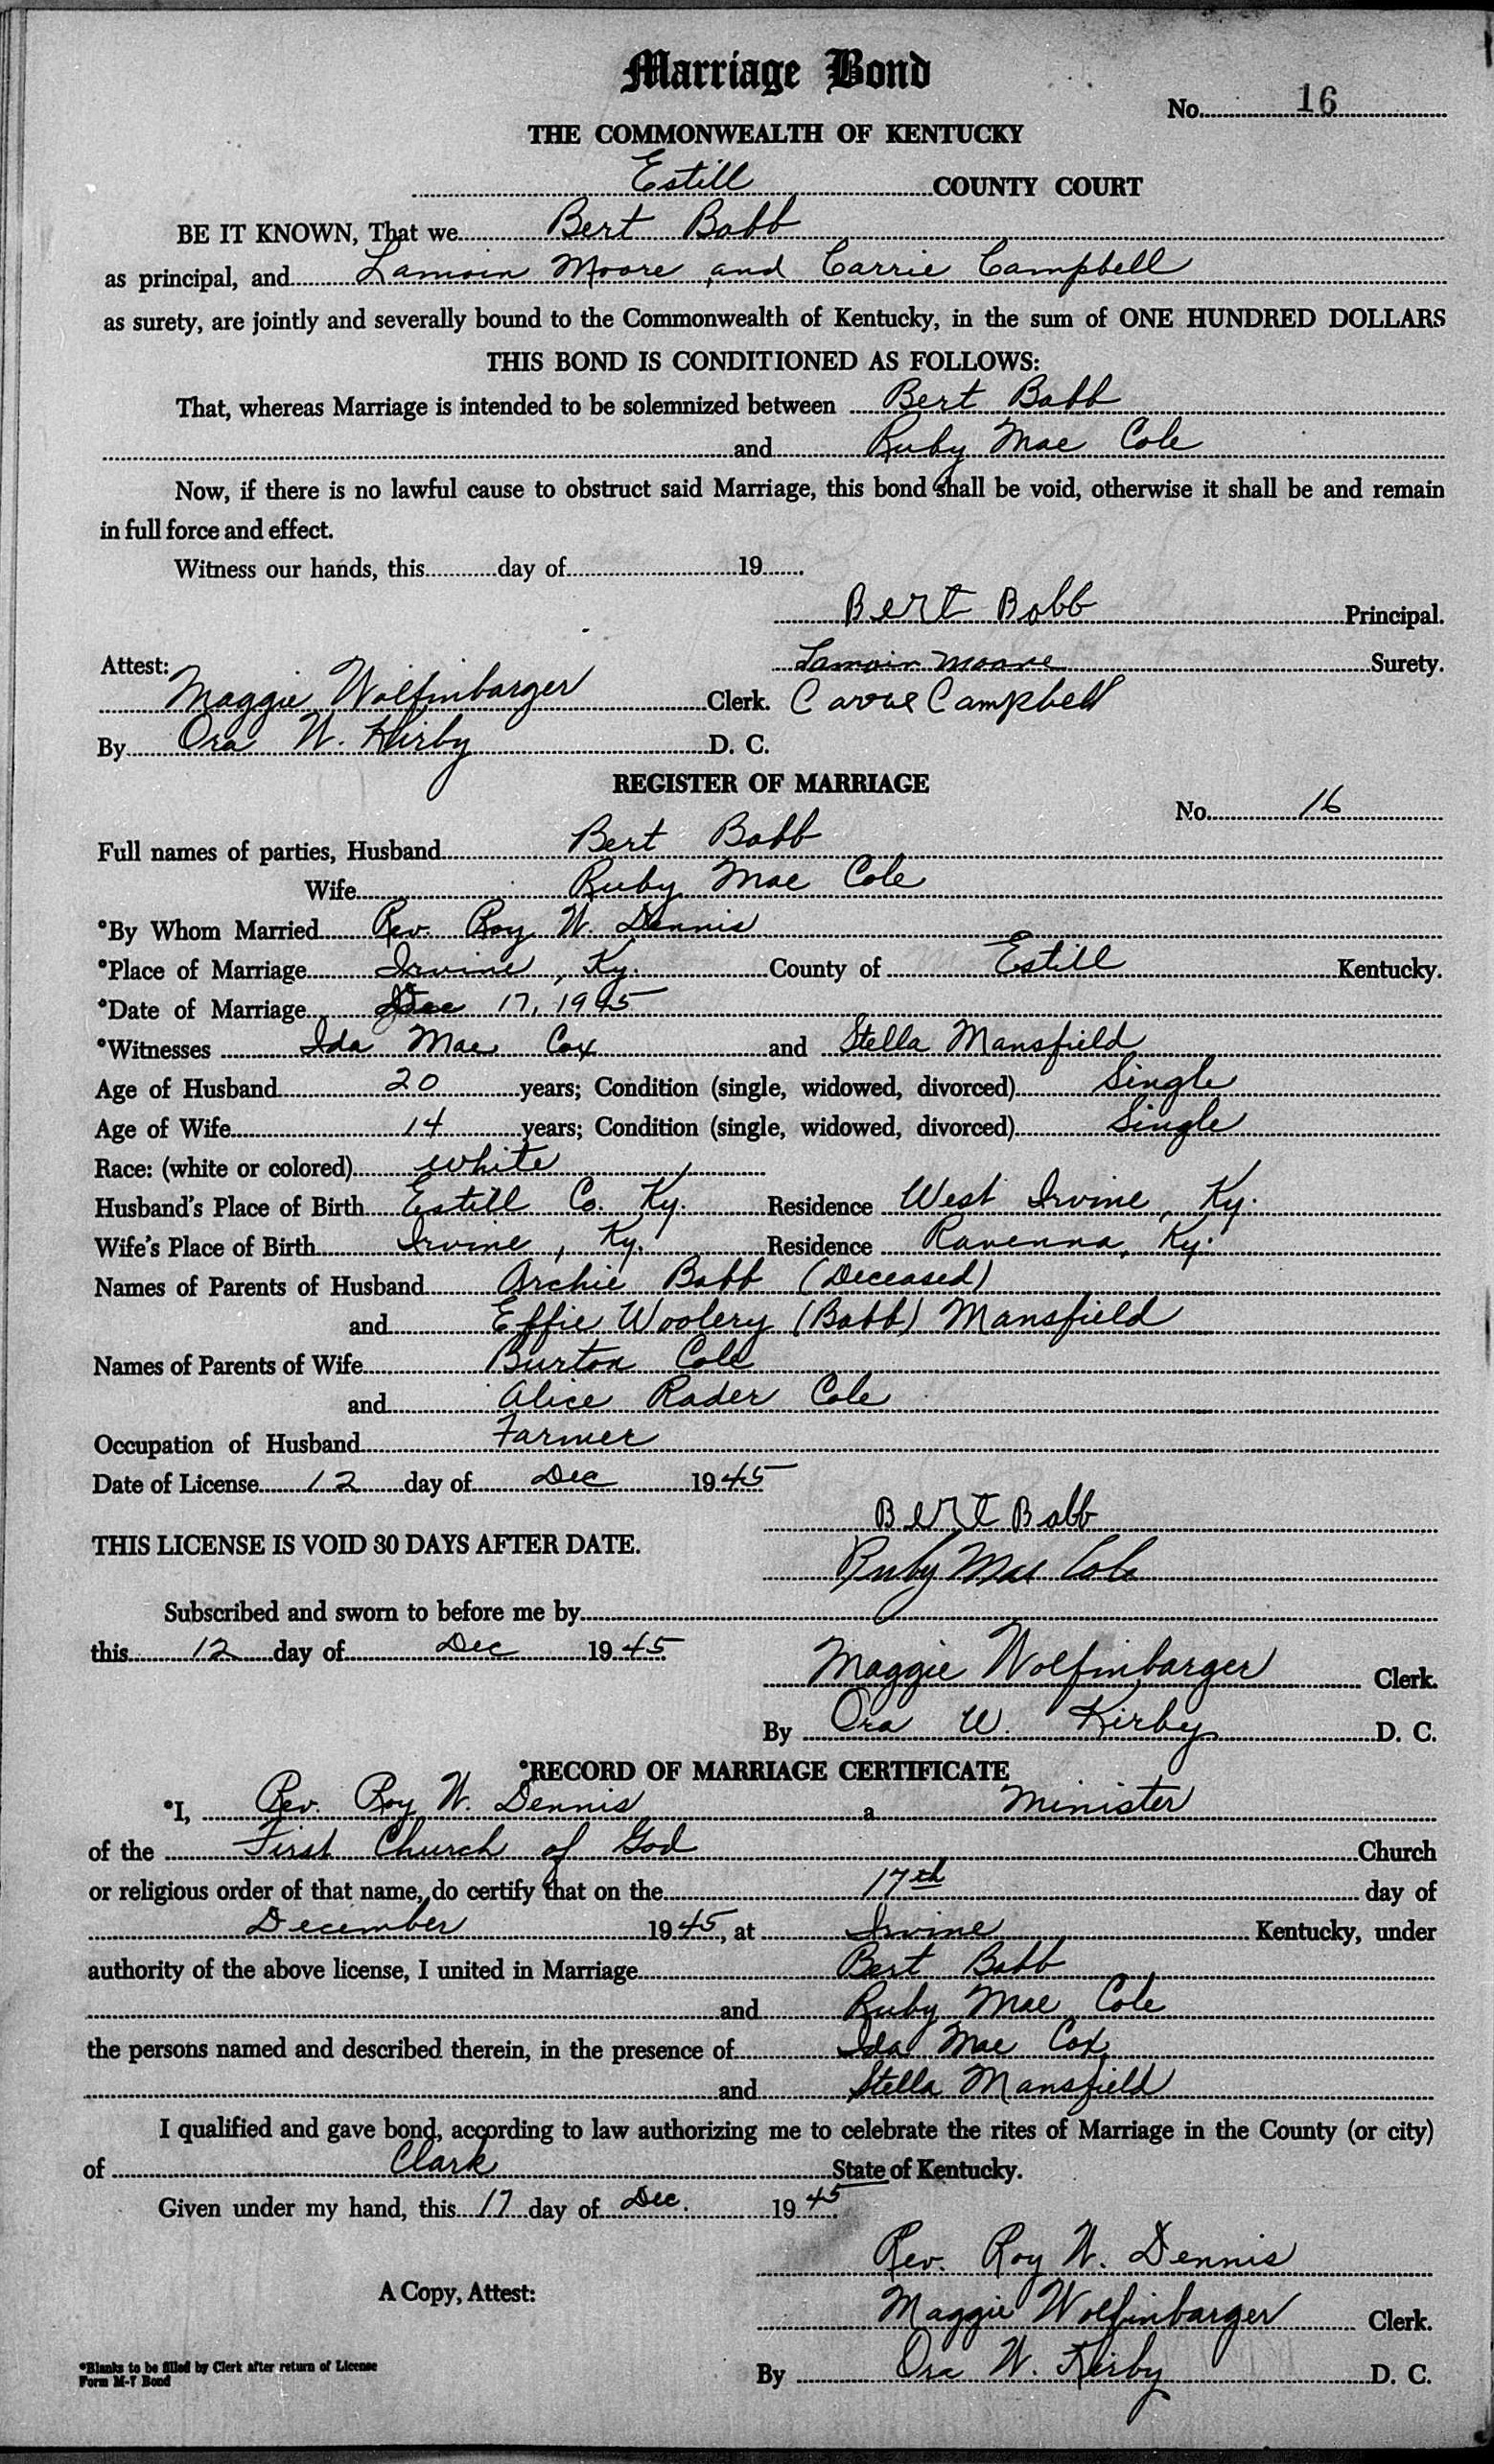 Marriage Bond
No. 16
THE COMMONWEALTH OF KENTUCKY
Estill COUNTY COURT
BE IT KNOWN, That we Bert Babb
as principal, and Lamoin Moore and Carrie Campbell
as surety, are jointly and severally bound to the Commonwealth of Kentucky, in the sum of ONE HUNDRED DOLLARS
THIS BOND IS CONDITIONED AS FOLLOWS:
That, whereas Marriage is intended to be solemnized between Bert Babb
and Ruby Mae Cole
Now, if there is no lawful cause to obstruct said Marriage, this bond shall be void, otherwise it shall be and remain
in full force and effect.
Witness our hands, this day of 19
Bert Babb Principal.
Attest: Lamoin Moore Surety.
Maggie Wolfinbarger Clerk. Carrie Campbell
By Ora W. Kirby D. C.
REGISTER OF MARRIAGE
No. 16
Full names of parties, Husband Bert Babb
Wife Ruby Mae Cole
*By Whom Married Rev. Roy W. Dennis
*Place of Marriage Irvine, Ky. County of Estill Kentucky.
*Date of Marriage Dec 17, 1945
*Witnesses Ida Mae Cox and Stella Mansfield
Age of Husband 20 years; Condition (single, widowed, divorced) Single
Age of Wife 14 years; Condition (single, widowed, divorced) Single
Race: (white or colored) white
Husband's Place of Birth Estill Co. Ky. Residence West Irvine, Ky.
Wife's Place of Birth Irvine, Ky. Residence Ravenna, Ky.
Names of Parents of Husband Archie Babb (Deceased)
and Effie Woolery (Babb) Mansfield
Names of Parents of Wife Burton Cole
and Alice Rader Cole
Occupation of Husband Farmer
Date of License 12 day of Dec 1945
Bert Babb
THIS LICENSE IS VOID 30 DAYS AFTER DATE.
Ruby Mae Cole
Subscribed and sworn to before me by
this 12 day of Dec 1945
Maggie Wolfinbarger Clerk.
By Ora W. Kirby D. C.
*RECORD OF MARRIAGE CERTIFICATE
*I, Rev. Roy W. Dennis a Minister
of the First Church of God Church
or religious order of that name, do certify that on the 17th day of
December 1945, at Irvine Kentucky, under
authority of the above license, I united in Marriage Bert Babb
and Ruby Mae Cole
the persons named and described therein, in the presence of Ida Mae Cox
and Stella Mansfield
I qualified and gave bond, according to law authorizing me to celebrate the rites of Marriage in the County (or city)
of Clark State of Kentucky.
Given under my hand, this 17 day of Dec. 1945
Rev. Roy W. Dennis
A Copy, Attest:
Maggie Wolfinbarger Clerk.
By Ora W. Kirby D. C.
*Blanks to be filled by Clerk after return of License
Form M-7 Bond